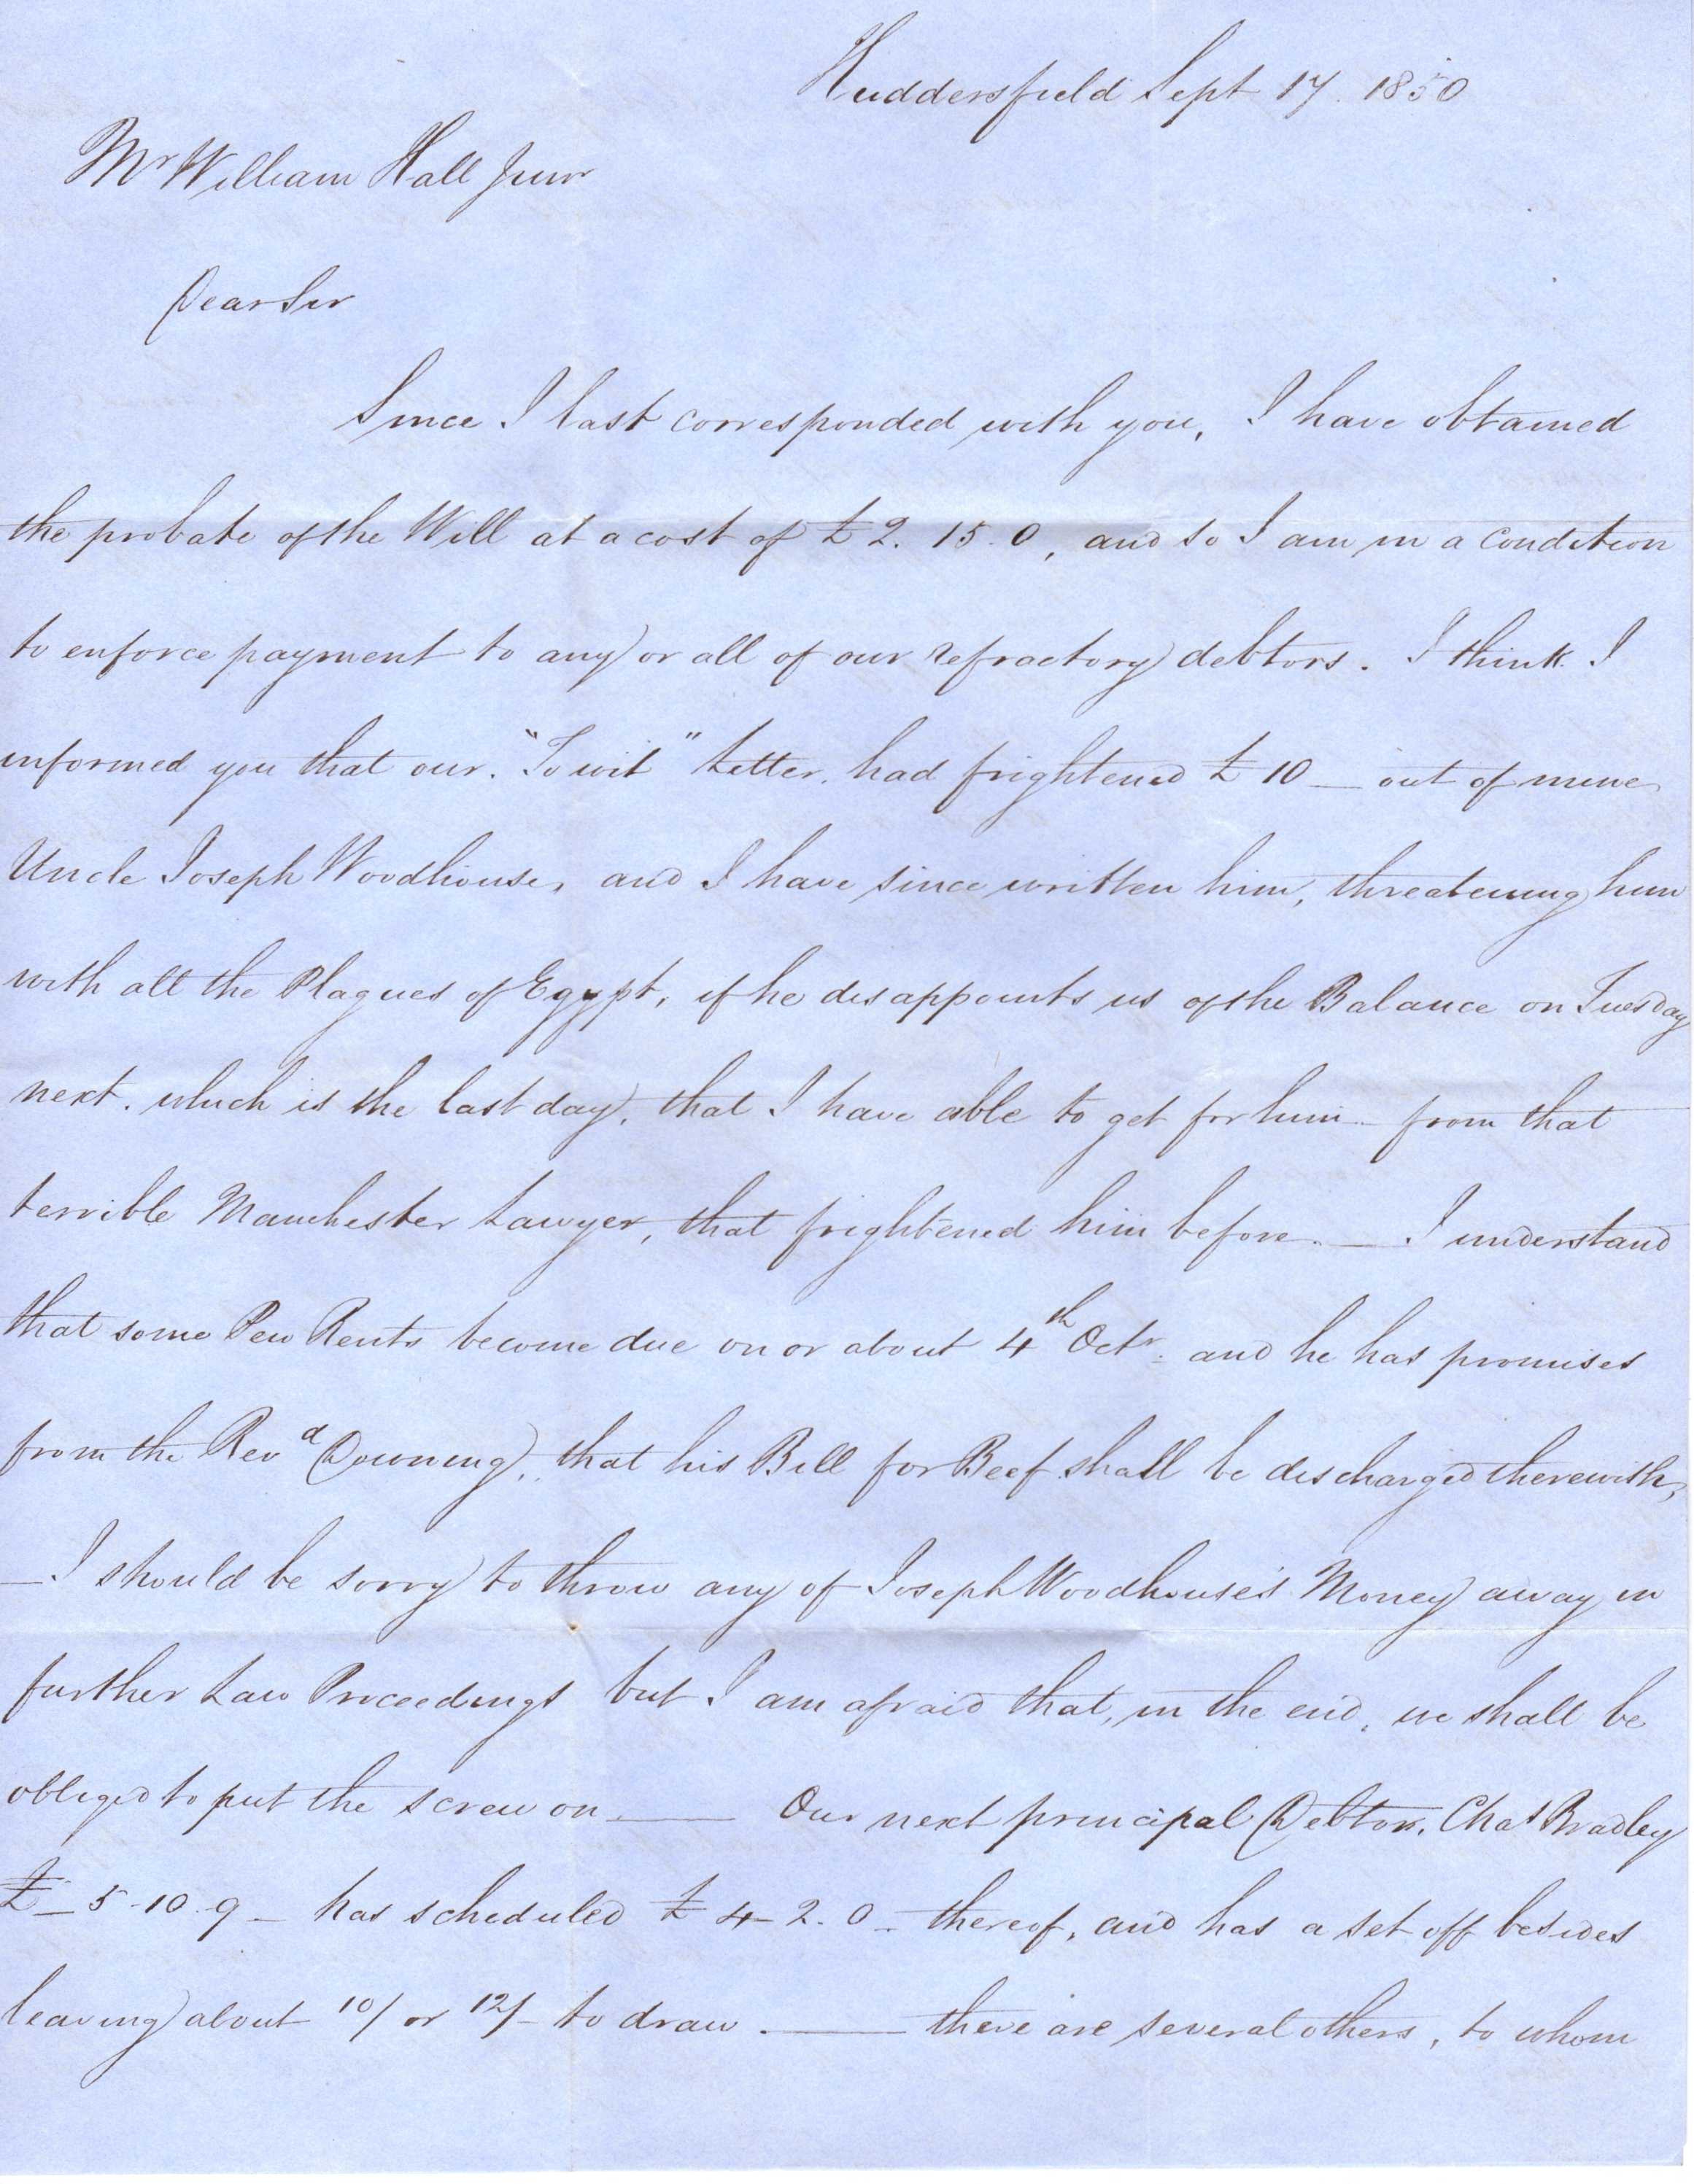 Huddersfield Sept 17. 1850
Mr William Hall Junr
Dear Sir
Since I last corresponded with you, I have obtained
the probate of the Will at a cost of £2. 15. 0, and so I am in a condition
to enforce payment to any or all of our refractory debtors. I think I
informed you that our. "To wit" Letter, had frightened £10 — out of mine
Uncle Joseph Woodhouse, and I have since written him, threatening him
with all the Plagues of Egypt, if he disappoints us of the Balance on Tuesday
next. which is the last day, that I have able to get for him — from that
terrible Manchester Lawyer, that frightened him before. — I understand
that some Pew Rents become due on or about 4th Octr. and he has promises
from the Revd Downing, that his Bill for Beef shall be discharged therewith,
— I should be sorry to throw any of Joseph Woodhouse's Money away in
further Law Proceedings but I am afraid that, in the end, we shall be
obliged to put the screw on — Our next principal Debtor, Chas Bradley
£ — 5 - 10. 9 — has scheduled £4 - 2. 0 — thereof, and has a set off besides
leaving about 10/ or 12/- to draw. — there are several others, to whom